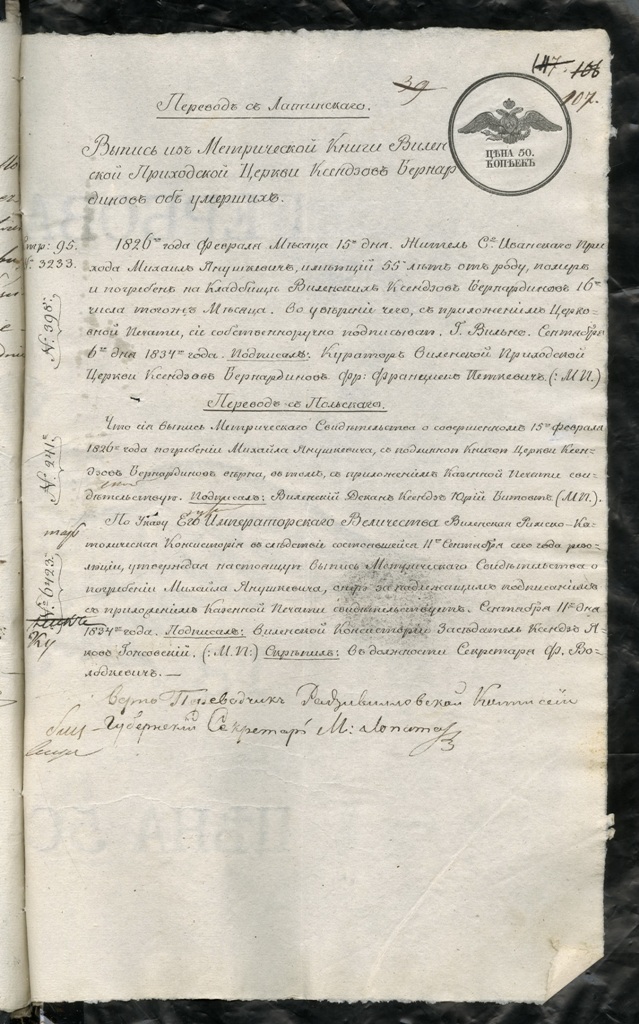 39
147. 106
107.
Переводъ съ Латинскаго.
ЦѢНА 50.
КОПѢЕКЪ
Выпись изъ Метрической Книги Вилен
ской Приходской Церкви Ксендзовъ Бернар
диновъ объ умершихъ.
стр: 95.
№ 3233.
№ 398.
1826го года Февраля Мѣсяца 15го дня. Житель Св. Иванскаго При
хода Михаилъ Янушкевичъ, имѣющій 55 лѣтъ отъ роду, померъ
и погребенъ на Кладбищѣ Виленскихъ Ксендзовъ Бернардиновъ 16го
числа тогожъ Мѣсяца. Во увѣреніе чего, съ приложеніемъ Церков
ной Печати, сіе собственноручно подписываю. Г. Вильно. Сентября
6го дня 1834го года. Подписалъ: Кураторъ Виленской Приходской
Церкви Ксендзовъ Бернардиновъ Фр: Францишекъ Петкевичъ (: М. П.)
Переводъ съ Польскаго.
№ 241.
Что сія выпись Метрическаго Свидѣтельства о совершенномъ 15го Февраля
1826го года погребеніи Михаила Янушкевича, съ подлинною Книгою Церкви Ксен
дзовъ Бернардиновъ вѣрна, въ томъ, съ приложеніемъ Казенной Печати сви
дѣтельствую. Подписалъ: Виленскій Деканъ Ксендзъ Юрій Витовтъ (: М. П.)
№ 6423.
По Указу Его Императорскаго Величества Виленская Римско-Ка
толическая Консисторія въ слѣдствіе состоявшейся 11го Сентября сего года резо
люціи, утверждая настоящую выпись Метрическаго Свидѣтельства о
погребеніи Михаила Янушкевича, оную за надлежащимъ подписаніемъ
съ приложеніемъ Казенной Печати свидѣтельствуетъ. Сентября 11го дня
1834го года. Подписалъ: Виленской Консисторіи Засѣдатель Ксендзъ Я
ковъ (: М. П.:) Скрѣпилъ: Въ должности Секретаря Ф. Во
лодкевичъ.
Переводчикъ Радзивилловской Коммисіи
Губернскій Секретарь М: Лопата